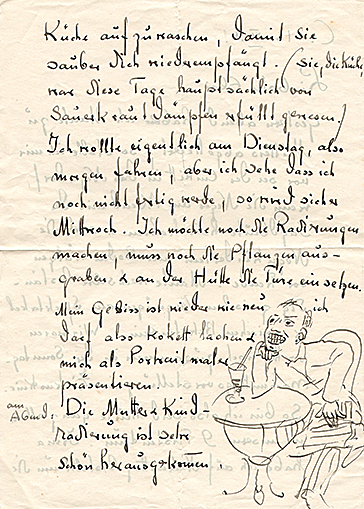 Küche aufzuwaschen, damit sie
sauber Dich wiederempfängt. (sie, die Küche
war diese Tage hauptsächlich von
Sauerkrautdämpfen erfüllt gewesen.)
Ich wollte eigentlich am Dienstag, also
morgen fahren, aber ich sehe dass ich
noch nicht fertig werde, so wird sicher
Mittwoch. Ich möchte noch die Radirungen
machen, muss noch die Pflanzen aus-
graben & an der Hütte die Türe einsetzen.
Mein Gebiss ist wieder wie neu ich
darf also kokett lachend
mich als Portraitmaler
präsentieren.
am
Abend: Die Mutter & Kind-
radierung ist sehr
schön herausgekommen.